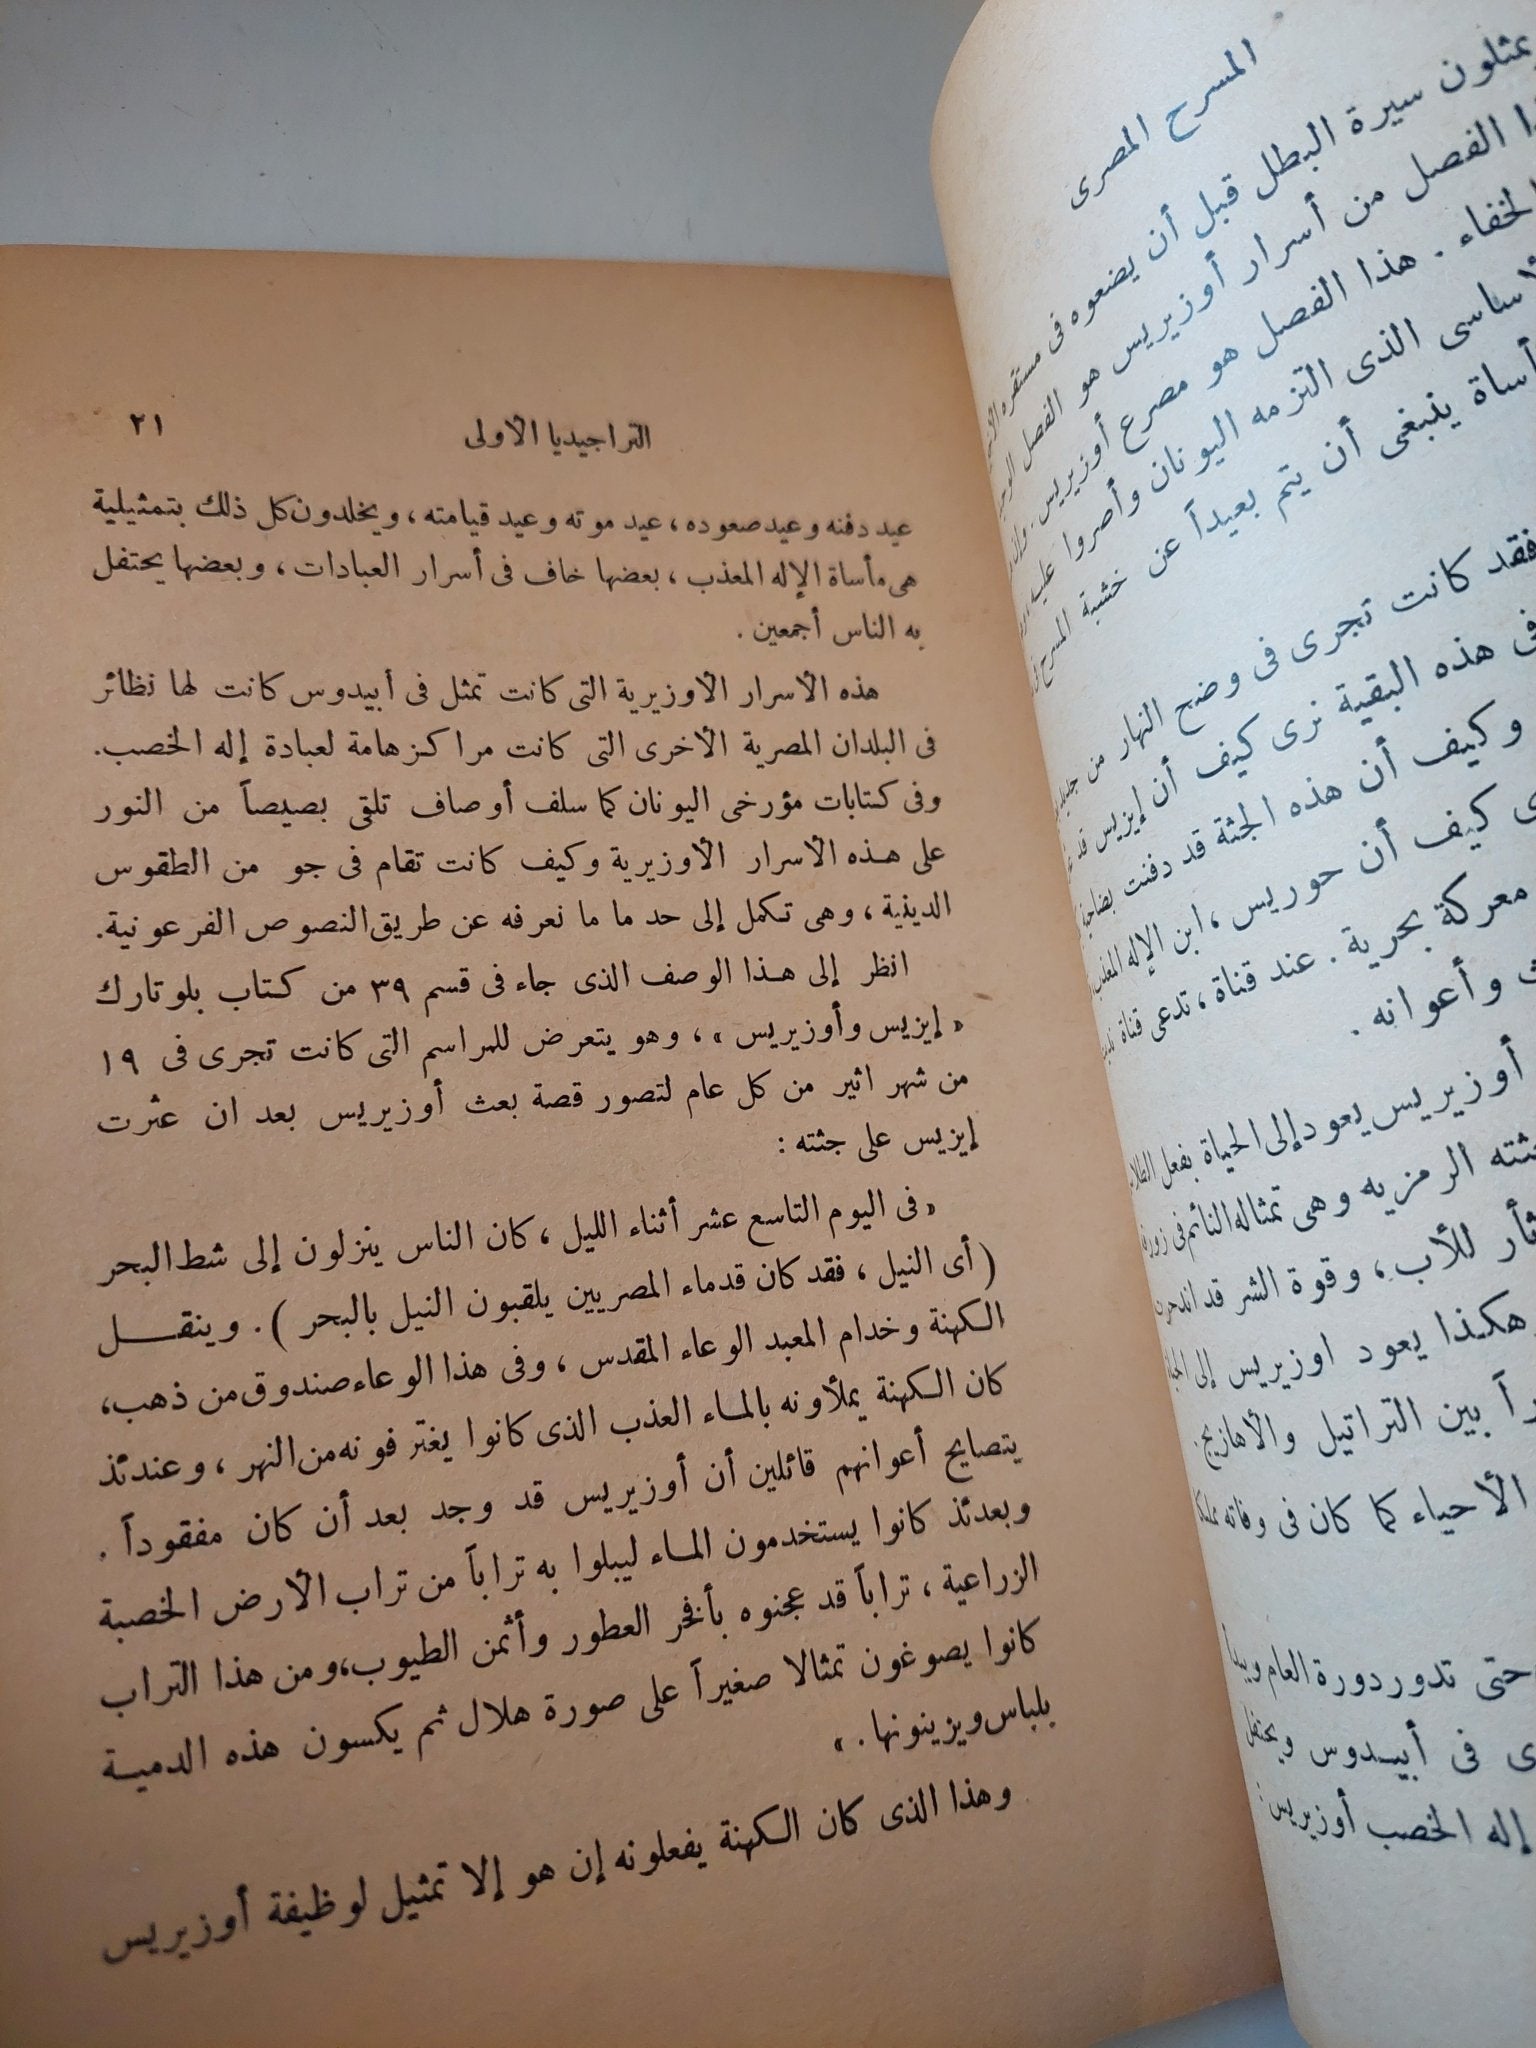 المسرح المصرى
يمثلون سيرة البطل قبل أن يضعوه فى مستقره
الفصل من أسرار أوزيريس هو الفصل
الخفاء . هذا الفصل هو مصرع أوزيريس
الذى التزمه اليونان وأصروا عليه
ينبغى أن يتم بعيداً عن خشبة المسرح
فقد كانت تجرى فى وضح النهار من
هذه البقية نرى كيف أن إيزيس قد
وكيف أن هذه الجثة قد دفنت
كيف أن حوريس ، ابن الإله المعذب
معركة بحرية . عند قناة ، تدعى قناة
وأعوانه .
أوزيريس يعود إلى الحياة بفعل
الرمزيه وهى تمثاله النائم فى
للأب ، وقوة الشر قد اندحرت
هكذا يعود اوزيريس إلى
بين التراتيل والأهازيج
الأحياء كما كان فى وفاته
حتى تدور دورة العام ويبدأ
فى أبيدوس ويحتفل
إله الخصب أوزيريس :
التراجيديا الأولى ٢١
عيد دفنه وعيد صعوده ، عيد موته وعيد قيامته ، ويخلدون كل ذلك بتمثيلية
هى مأساة الإله المعذب ، بعضها خاف فى أسرار العبادات ، وبعضها يحتفل
به الناس أجمعين .
هذه الأسرار الأوزيرية التى كانت تمثل فى أبيدوس كانت لها نظائر
فى البلدان المصرية الأخرى التى كانت مراكز هامة لعبادة إله الخصب .
وفى كتابات مؤرخى اليونان كما سلف أوصاف تلقى بصيصاً من النور
على هذه الأسرار الأوزيرية وكيف كانت تقام فى جو من الطقوس
الدينية ، وهى تكمل إلى حد ما ما نعرفه عن طريق النصوص الفرعونية .
انظر إلى هذا الوصف الذى جاء فى قسم ٣٩ من كتاب بلوتارك
« إيزيس وأوزيريس » ، وهو يتعرض للمراسم التى كانت تجرى فى ١٩
من شهر اثير من كل عام لتصور قصة بعث أوزيريس بعد ان عثرت
إيزيس على جثته :
« فى اليوم التاسع عشر أثناء الليل ، كان الناس ينزلون إلى شط البحر
( أى النيل ، فقد كان قدماء المصريين يلقبون النيل بالبحر ) . وينقل
الكهنة وخدام المعبد الوعاء المقدس ، وفى هذا الوعاء صندوق من ذهب ،
كان الكهنة يملأونه بالماء العذب الذى كانوا يغترفونه من النهر ، وعندئذ
يتصايح أعوانهم قائلين أن أوزيريس قد وجد بعد أن كان مفقوداً .
وبعدئذ كانوا يستخدمون الماء ليبلوا به تراباً من تراب الأرض الخصبة
الزراعية ، تراباً قد عجنوه بأفخر العطور وأثمن الطيوب ، ومن هذا التراب
كانوا يصوغون تمثالا صغيراً على صورة هلال ثم يكسون هذه الدمية
بلباس ويزينونها . »
وهذا الذى كان الكهنة يفعلونه إن هو إلا تمثيل لوظيفة أوزيريس